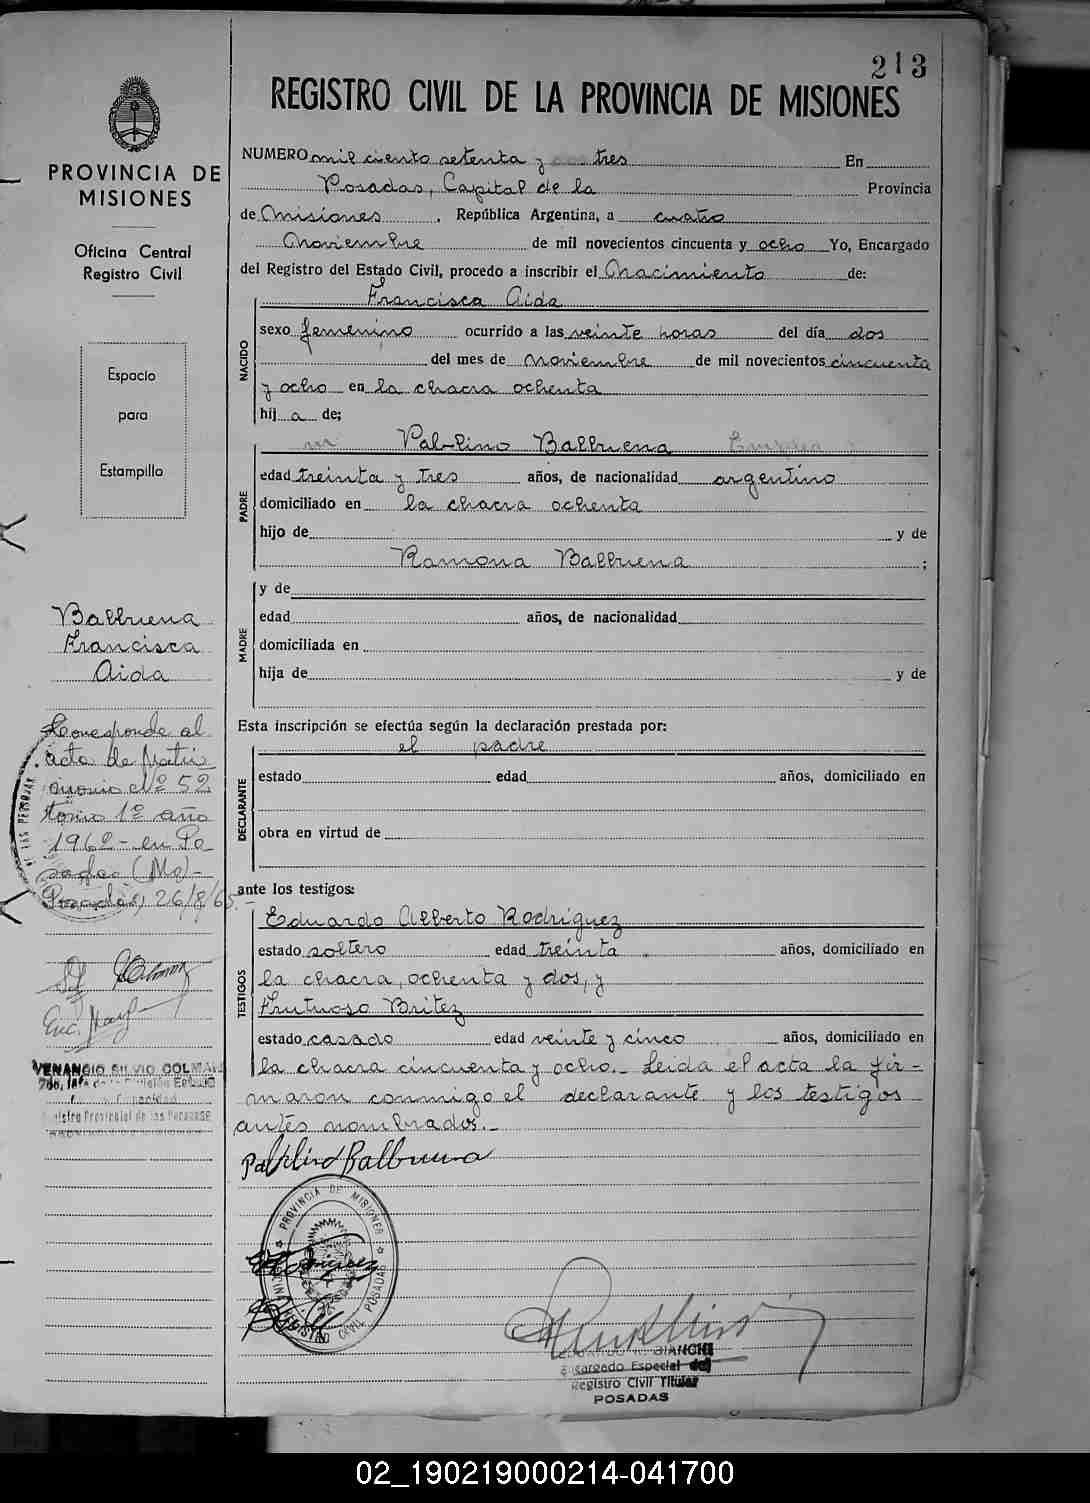 213
REGISTRO CIVIL DE LA PROVINCIA DE MISIONES
NUMERO mil ciento setenta y tres En
Posadas, Capital de la Provincia
de Misiones, República Argentina, a cuatro
Noviembre de mil novecientos cincuenta y ocho Yo, Encargado
del Registro del Estado Civil, procedo a inscribir el Nacimiento de:
NACIDO
Francisca Aida
sexo femenino ocurrido a las veinte horas del día dos
del mes de noviembre de mil novecientos cincuenta
y ocho en la chacra ochenta
hij a de;
PADRE
Balbuena
edad treinta y tres años, de nacionalidad argentino
domiciliado en la chacra ochenta
hijo de y de
Ramona Balbuena ;
MADRE
y de
edad años, de nacionalidad
domiciliada en
hija de y de
Esta inscripción se efectúa según la declaración prestada por:
DECLARANTE
el padre
estado edad años, domiciliado en
obra en virtud de
ante los testigos:
TESTIGOS
Eduardo Alberto Rodriguez
estado soltero edad treinta años, domiciliado en
la chacra, ochenta y dos, y
Frutuoso Britez
estado casado edad veinte y cinco años, domiciliado en
la chacra cincuenta y ocho.- Leida el acta la fir-
maron conmigo el declarante y los testigos
antes nombrados.-
Balbuena
PROVINCIA DE MISIONES
REGISTRO CIVIL POSADAS
BIANCHI
Encargado Especial del
Registro Civil Titular
POSADAS
PROVINCIA DE
MISIONES
Oficina Central
Registro Civil
Espacio
para
Estampillo
Balbuena
Francisca
Aida
Corresponde al
acta de Matri
monio Nº 52
tomo 1º año
1962 - en Po
sadas (Ms)-
Posadas, 26/8/65.-
VENANCIO SILVIO COLMAN
Registro Provincial de las Personas
02_190219000214-041700